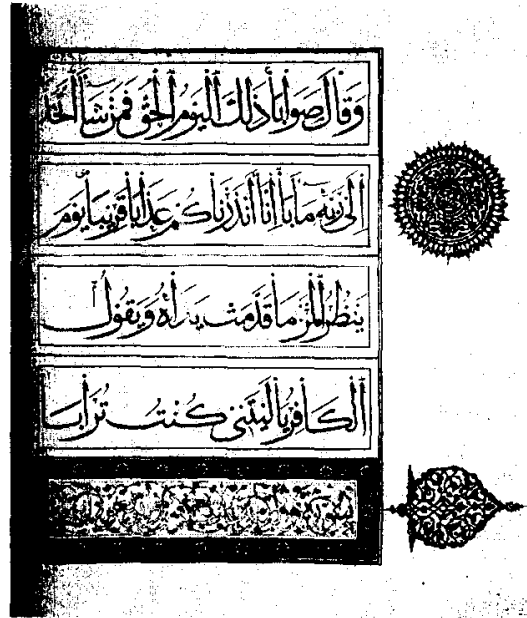 وَقَالَ صَوَابًا ذَلِكَ الْيَوْمُ الْحَقُّ فَمَنْ شَاءَ اتَّخَذَ
إِلَى رَبِّهِ مَآبًا إِنَّا أَنْذَرْنَاكُمْ عَذَابًا قَرِيبًا يَوْمَ
يَنْظُرُ الْمَرْءُ مَا قَدَّمَتْ يَدَاهُ وَيَقُولُ
الْكَافِرُ يَا لَيْتَنِي كُنْتُ تُرَابًا